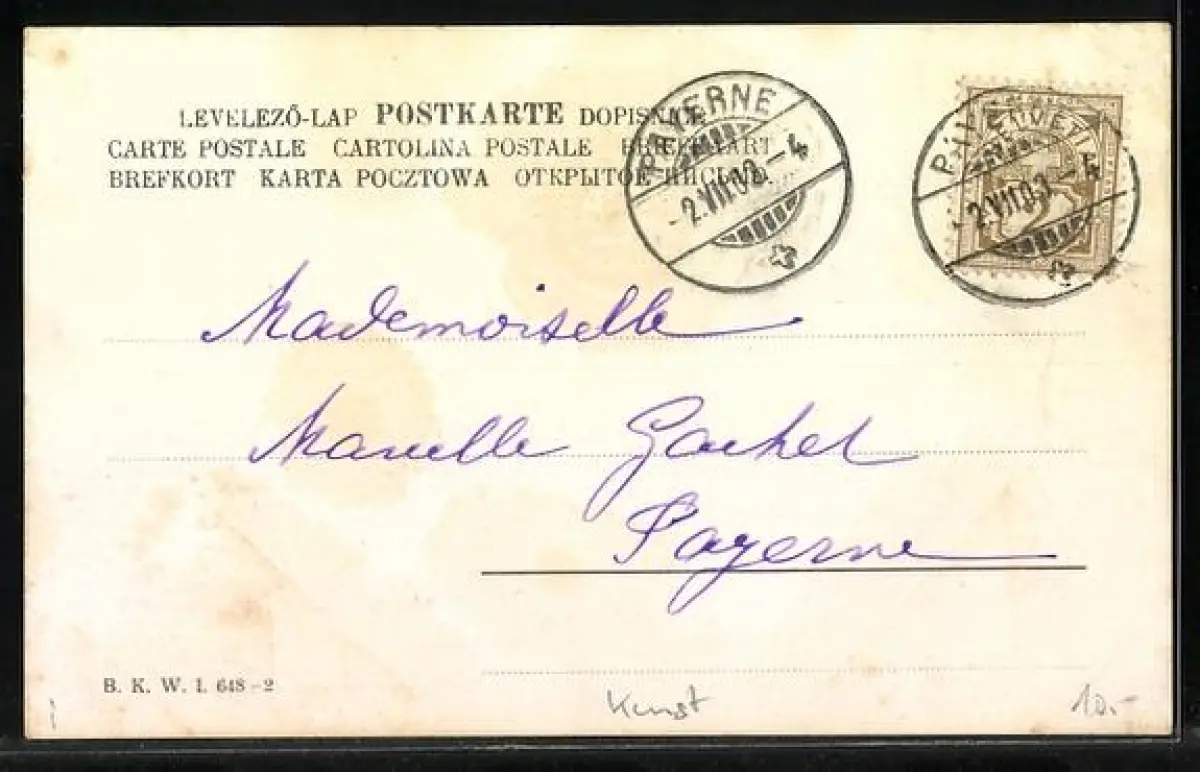 LEVELEZŐ-LAP POSTKARTE DOPISNICE
CARTE POSTALE CARTOLINA POSTALE BRIEFKART
BREFKORT KARTA POCZTOWA ОТКРЫТОЕ ПИСЬМО.
PAYERNE
-2.VII.03.-4
2.VII.03.-4
2
Mademoiselle
Marcelle Gachet
Payerne
B. K. W. I. 648-2
Kunst
10.-